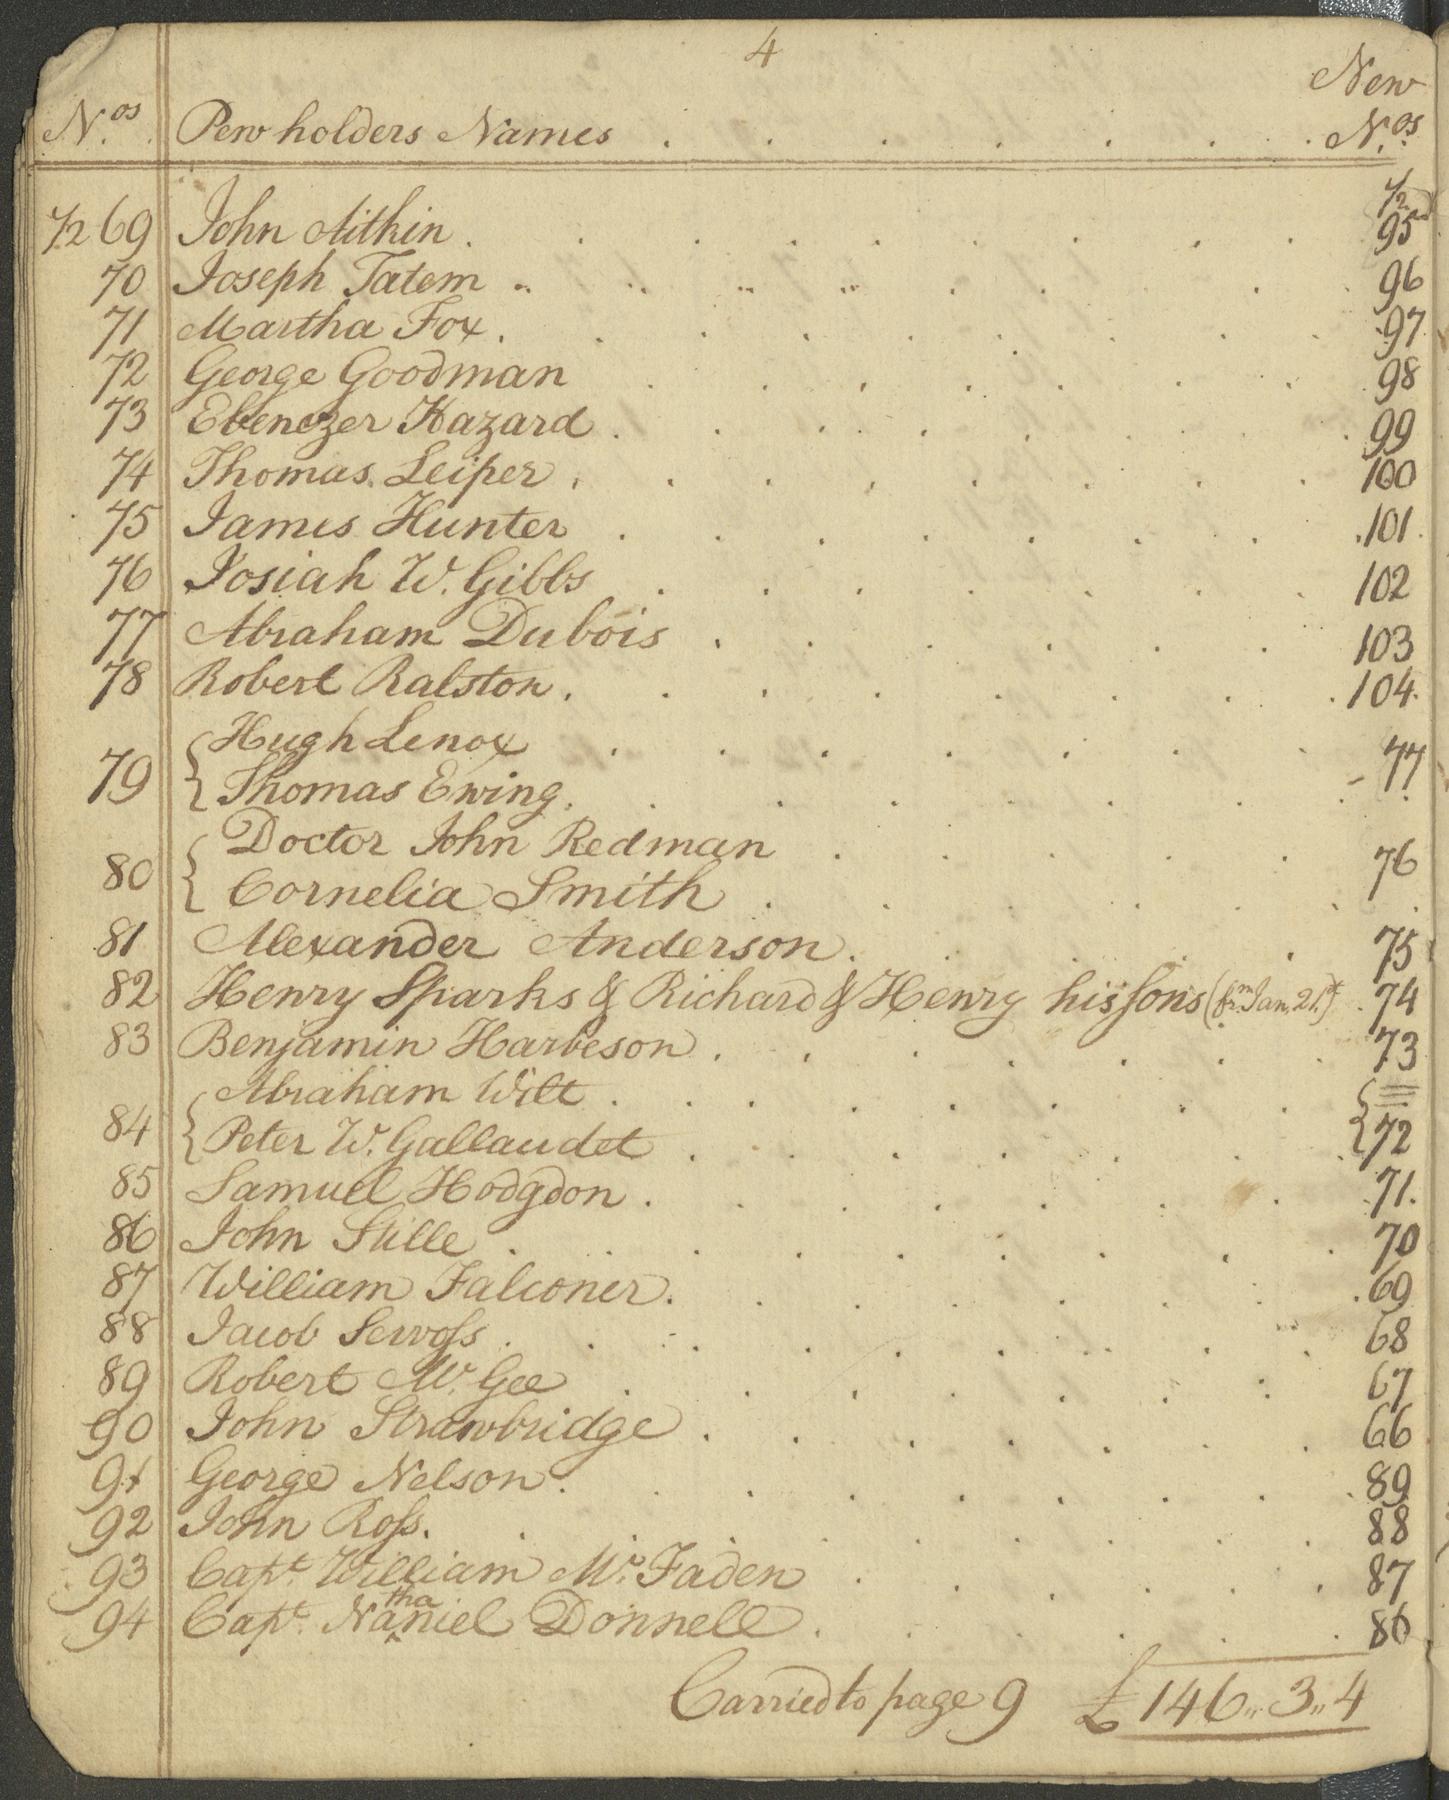 4
New
N.os Pew holders Names . . . . . . . N.os
1/2 69 John Aitkin . . . . . . . . 1/2 95
70 Joseph Tatem . . . . . . . 96
71 Martha Fox . . . . . . . 97
72 George Goodman . . . . . . 98
73 Ebenezer Hazard . . . . . . . 99
74 Thomas Leiper . . . . . . . 100
75 James Hunter . . . . . . . 101
76 Josiah W. Gibbs . . . . . . . 102
77 Abraham Dubois . . . . . . 103
78 Robert Ralston . . . . . . . 104
Hugh Lenox . . . . . . .
79 77
Thomas Ewing . . . . . . .
Doctor John Redman . . . . .
80 76
Cornelia Smith . . . . . .
81 Alexander Anderson . . . . 75
82 Henry Sparks & Richard & Henry his sons (frm Jan. 21st) 74
83 Benjamin Harbeson . . . . . . . 73
Abraham Wilt . . . . . . .
84 72
Peter W. Gallaudet . . . . . . .
85 Samuel Hodgdon . . . . . . 71
86 John Stille . . . . . . . 70
87 William Falconer . . . . . . . 69
88 Jacob Servoss . . . . . . . 68
89 Robert Mc. Gee . . . . . . . 67
90 John Strawbridge . . . . . . . 66
91 George Nelson . . . . . . . 89
92 John Ross . . . . . . . 88
93 Capt. William Mc. Faden . . . . . 87
94 Capt. Nathaniel Donnell . . . . . 86
Carried to page 9 £146,, 3,, 4